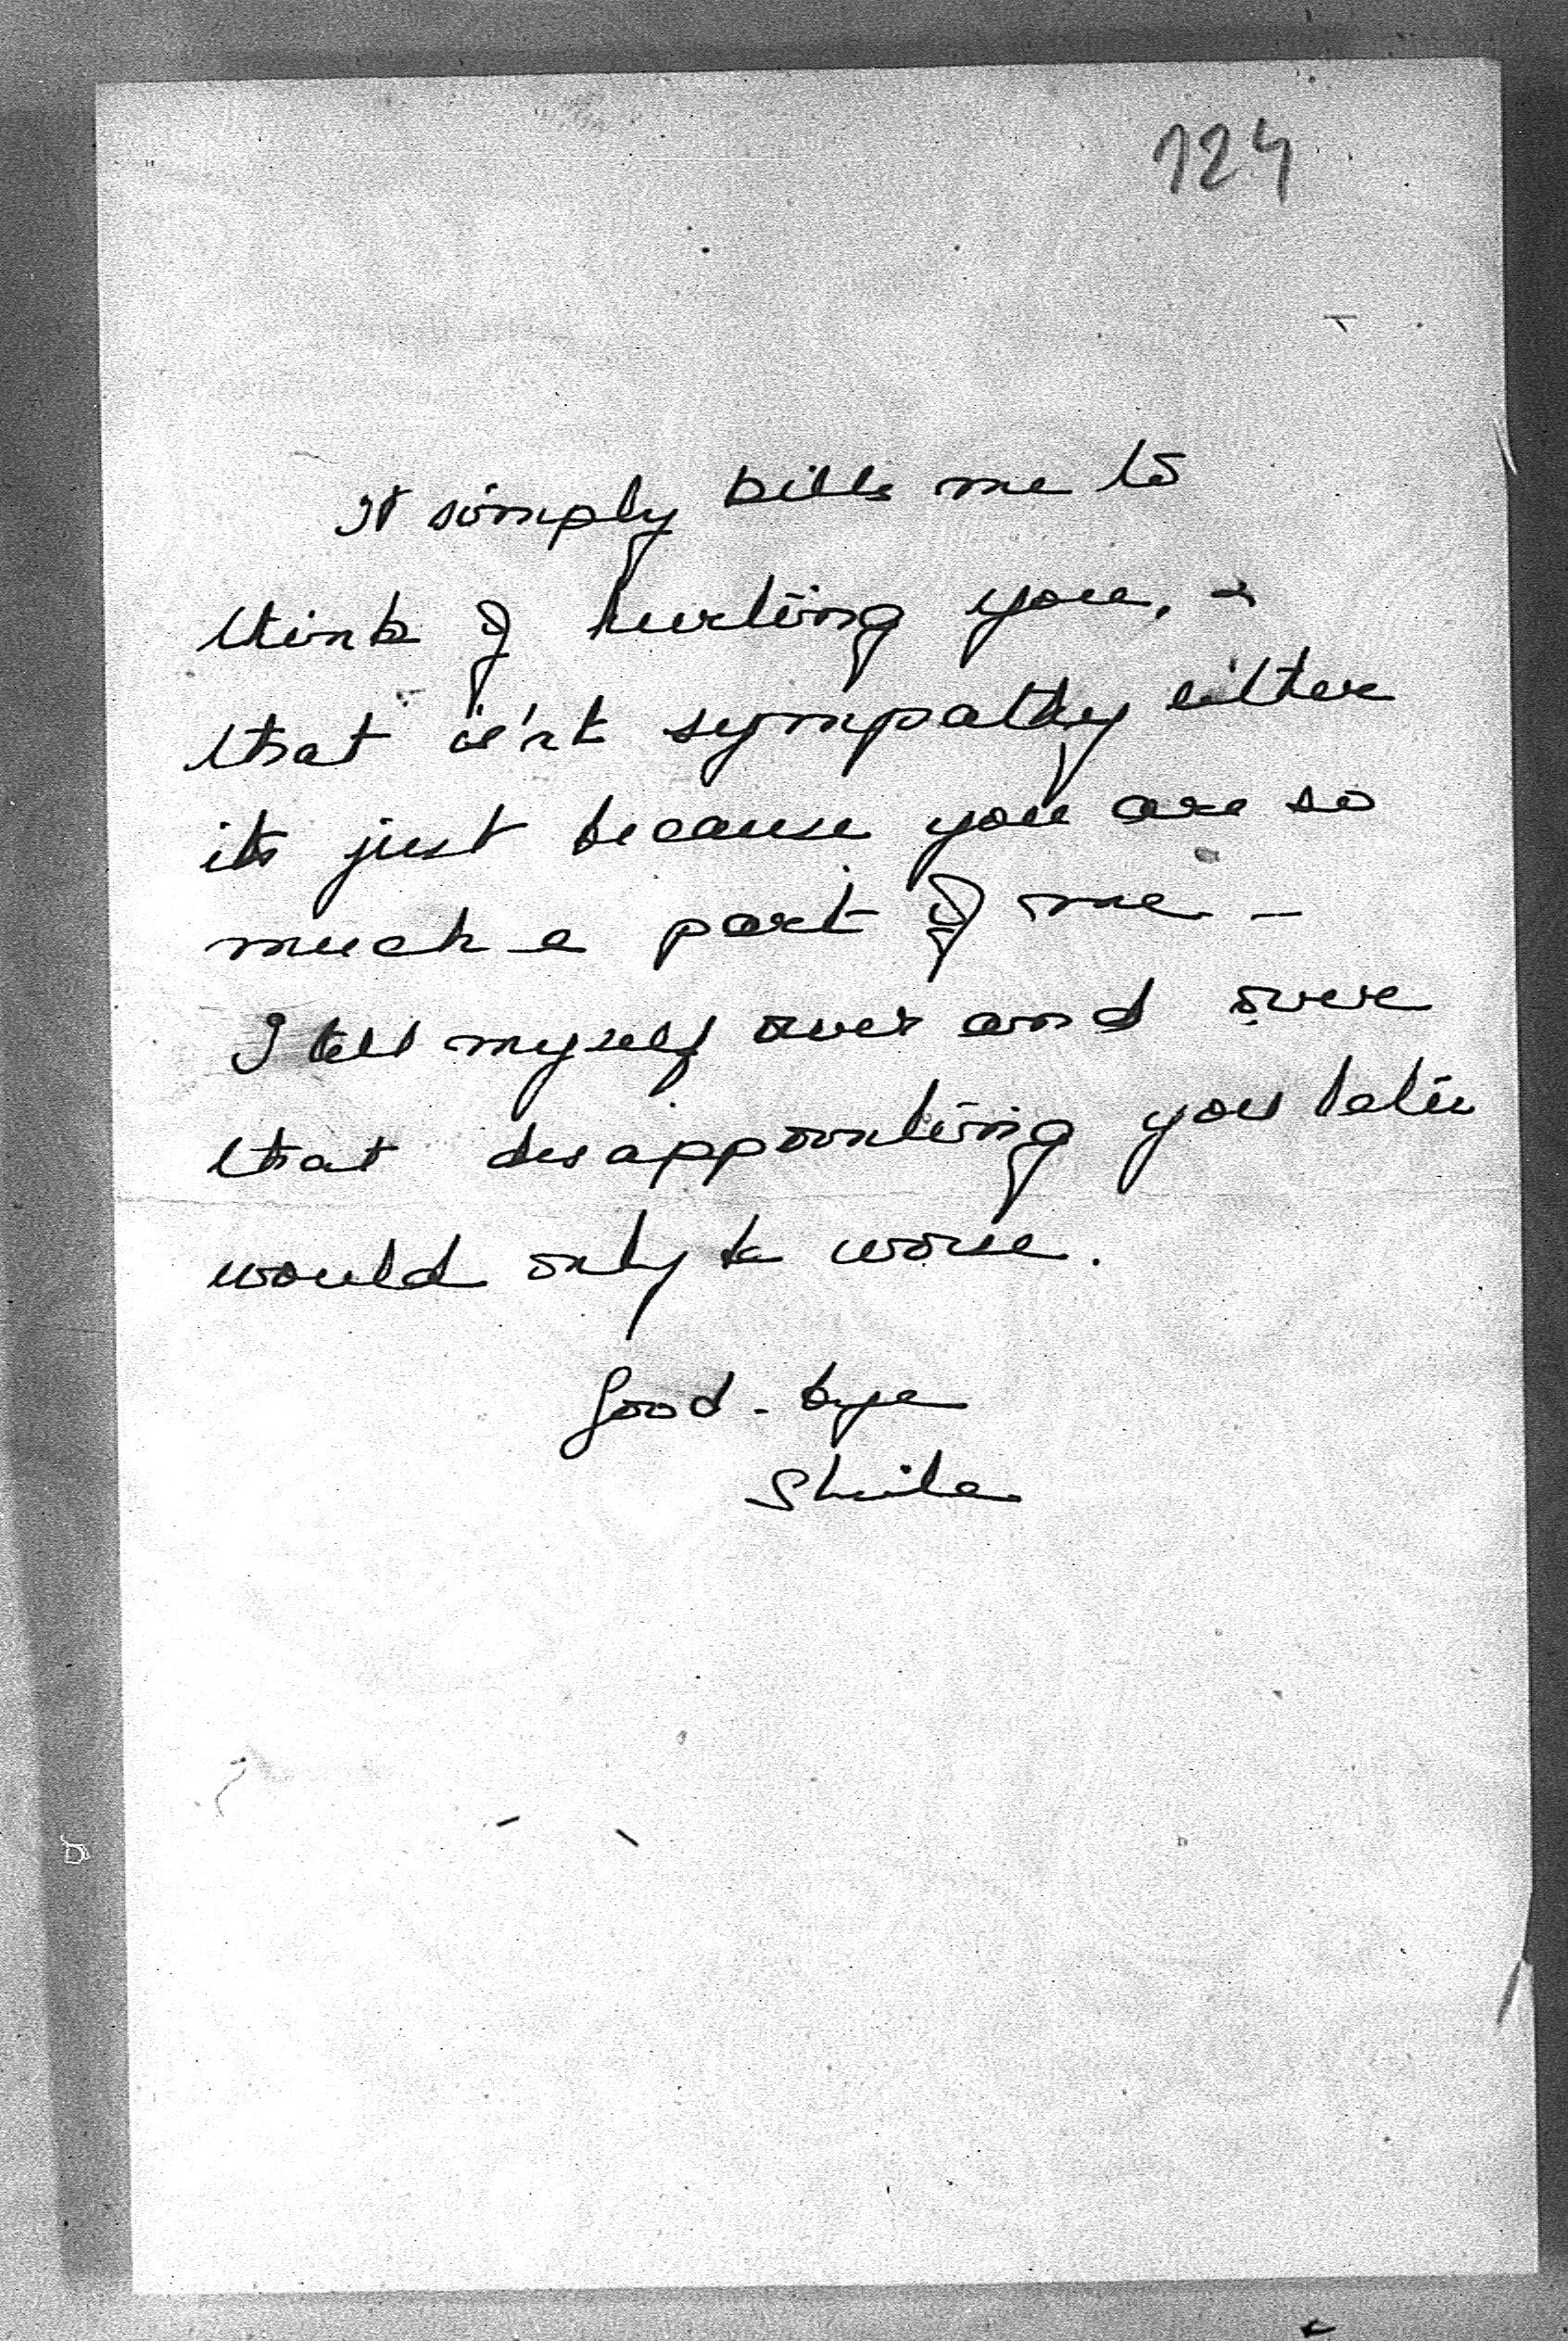 124
It simply kills me to
think of hurting you, &
that is'nt sympathy either
its just because you are so
much a part of me -
I tell myself over and over
that disappointing you later
would only be worse.
Good-bye
Sheila